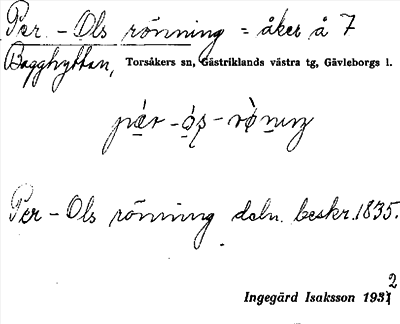 Per - Ols rönning = åker å 7
Bagghyttan, Torsåkers sn, Gästriklands västra tg, Gävleborgs l.
Per - Ols rönning deln. beskr. 1835.
Ingegärd Isaksson 1932